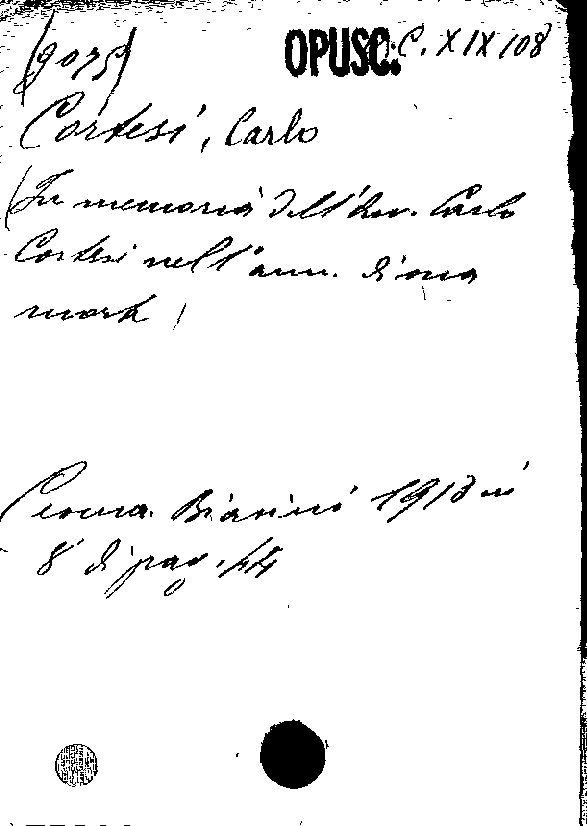 (9075) OPUSC. C. XIX 108
Cortesi, Carlo
In memoria dell'Avv. Carlo
Cortesi nell'ann. di sua
morte
Biasini 1913 in
8° di pag. 44